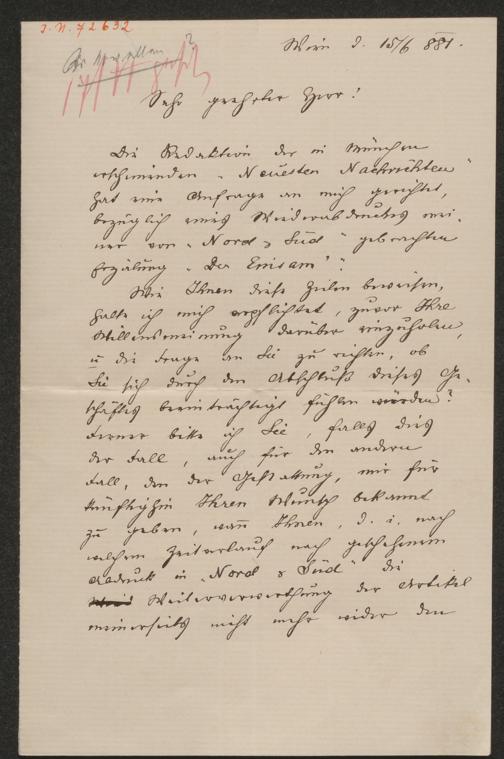 J.N. 72632
Wien d. 15/6 881.
Sehr geehrter Herr!
Die Redaktion der in München
erscheinenden „Neuesten Nachrichten"
hat eine Anfrage an mich gerichtet,
bezüglich eines Wiederabdruckes mei-
ner von „Nord & Süd" gebrachten
Erzälung „Der Einsam".
Wie Ihnen diese Zeilen beweisen,
halte ich mich verpflichtet, zuvor Ihre
Willensmeinung darüber einzuholen,
u die Frage an Sie zu richten, ob
Sie sich durch den Abschluß dieses Ge-
schäftes beeinträchtigt fühlen würden?
Ferner bitte ich Sie, falls dies
der Fall, auch für den andern
Fall, den der Gestattung, mir für
künftighin Ihren Wunsch bekannt
zu geben, wann Ihnen, d. i. nach
welchem Zeitverlauf nach geschehenem
Abdruck in „Nord & Süd" die
Weiterverwerthung der Artikel
meinerseits nicht mehr wider den